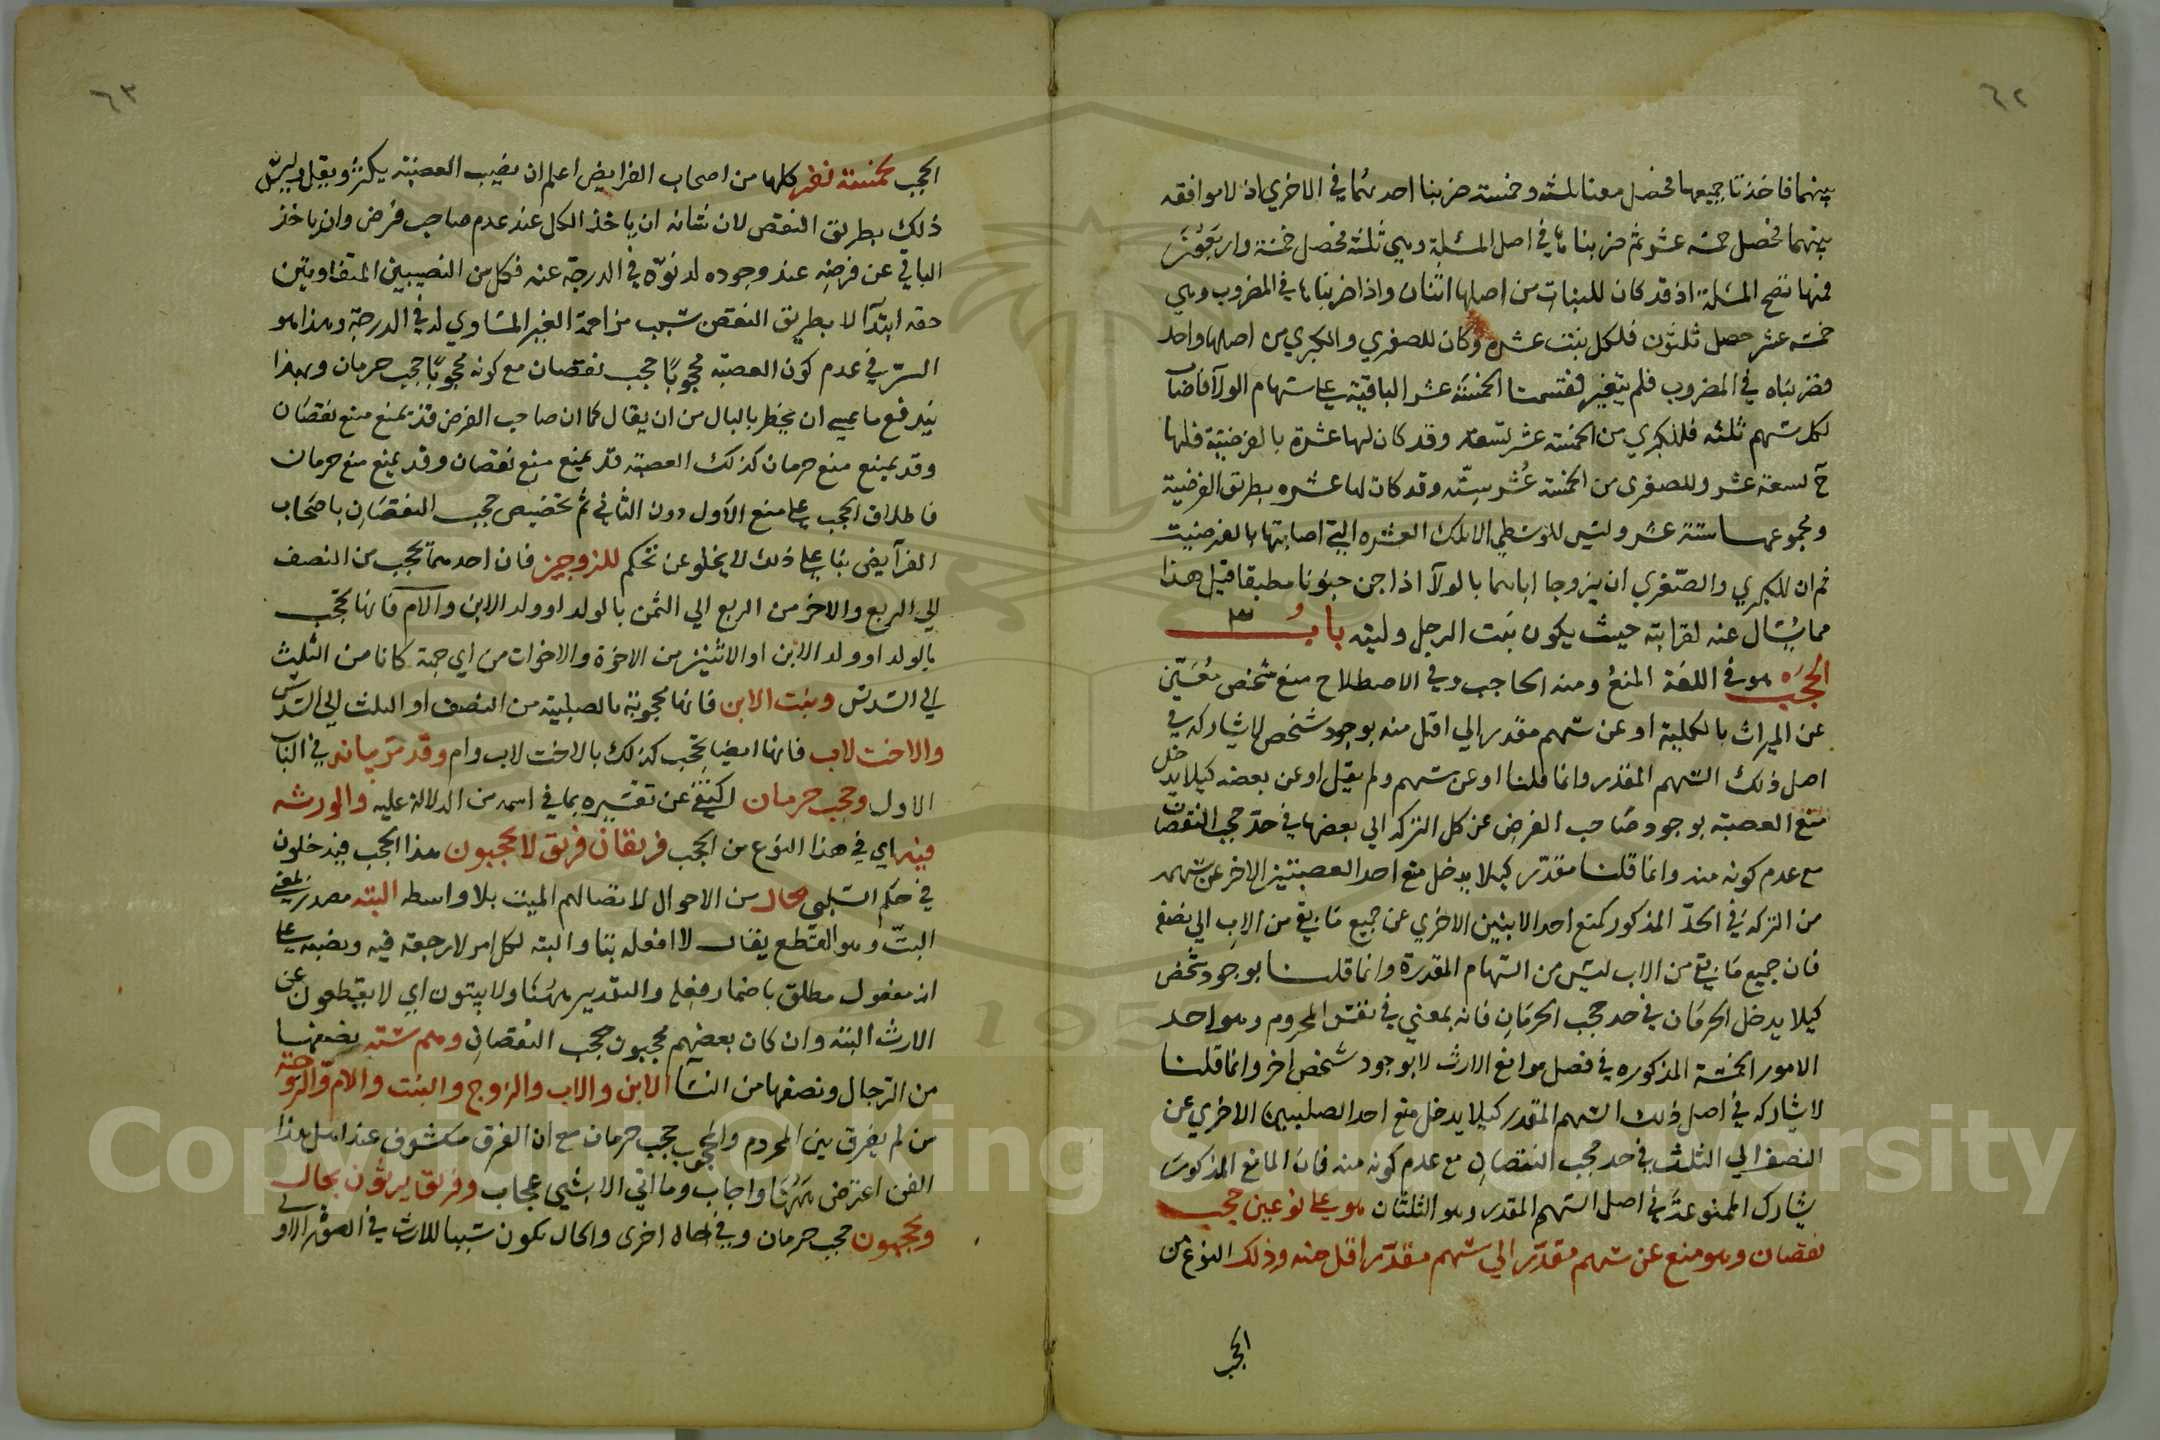 ٦٢
بينهما فاخذنا جميعها فحصل معنا ثلثه وخمسة ضربنا احديهما في الاخري اذ لا موافقه
بينهما فحصل خمسه عشر ثم ضربناها في اصل المسئلة وهي ثلثة فحصل خمسة واربعون
فمنها تصح المسئلة اذ قد كان للبنات من اصلها اثنان واذا ضربناها في المضروب وهي
خمسه عشر حصل ثلثون فلكل بنت عشره وكان للصغري والكبري من اصلها واحد
وضربناه في المضروب فلم يتغير فقسمنا الخمسة عشر الباقية علي سهام الولآ فاصاب
لكل سهم ثلثه فللكبري من الخمسة عشر تسعه وقد كان لها عشرة بالفرضية فلها
ح تسعة عشر وللصغرى من الخمسة عشر ستّه وقد كان لها عشره بطريق الفرضية
ومجموعهما ستة عشر وليس للوسطي الا تلك العشره التي اصابتها بالفرضيت
ثم ان للكبري والصّغري ان يزوجا اباهما بالولآ اذا جن جنونا مطبقا قيل هذا
مما يُسئال عنه لقرابته حيث يكون بنت الرجل وليته باب
الحجب هو في اللغة المنعُ ومنه الحاجب وفي الاصطلاح منع شخص معُيّن
عن الميراث بالكلية او عن سهم مقدر الي اقل منه بوجود شخص لا يشاركه في
اصل ذلك السّهم المقدر وانما قلنا او عن سهم ولم يقل او عن بعضه كيلا يدخل
منع العصبة بوجود صاحب الفرض عن كل التركه الي بعضها في حدّ حجب النقصان
مع عدم كونه منه وانما قلنا مقدّر كيلا يدخل منع احد العصبتين الاخر عن سهمه
من التركه في الحدّ المذكور كمنع احد الابنين الاخري عن جميع ما بقي من الاب الي نصفه
فان جميع ما بقي من الاب ليس من السّهام المقدرة وانما قلنا بوجود شخص
كيلا يدخل الحرمان في حد حجب الحرمان فانه بمعني في نفس المحروم وهو احد
الامور الخمسة المذكوره في فصل موانع الارث لا بوجود شخص اخر وانما قلنا
لا يشاركه في اصل ذلك السهم المقدر كيلا يدخل منع احد الصلبيين الاخري عن
النصف الي الثلث في حد حجب النقصان مع عدم كونه منه فان المانع المذكور
يشارك الممنوع عنه في اصل السّهم المقدر وهو الثلثان هو علي نوعين حجب
نقصان وهو منع عن سهم مقدّر الي سهم مقدّر اقل منه وذلك النوع من
الحجب
٦٣
الحجب لخمسة نفر كلها من اصحاب الفرايض اعلم ان نصيب العصبة يكثر ويقل وليس
ذلك بطريق النقص لان شانه ان ياخذ الكل عند عدم صاحب فرض وان ياخذ
الباقي عن فرضه عند وجوده لدنوّه في الدرجة عنه فكل من النصيبين المتفاوتين
حقه ابتدآ لا بطريق النقص بسبب مزاحمة الغير المساوي له في الدرجة وهذا هو
السرّ في عدم كون العصبة محجوبًا حجب نقصان مع كونه محجوبًا حجب حرمان وبهذا
يندفع ما عسي ان يخطر بالبال من ان يقال كما ان صاحب الفرض قد يمنع منع نقصان
وقد يمنع منع حرمان كذلك العصبة قد يمنع منع نقصان وقد يمنع منع حرمان
فاطلاق الحجب علي منع الاول دون الثاني ثم تخصيص حجب النقصان باصحاب
الفرآيض بناء علي ذلك لا يخلو عن تحكم للزوجين فان احدهما يحجب من النصف
الي الربع والاخر من الربع الي الثمن بالولد او ولد الابن والام فانها تحجب
بالولد او ولد الابن او الاثنين من الاخوة والاخوات من اي جهة كانا من الثلث
الي السدس وبنت الابن فانها محجوبة بالصلبية من النصف او الثلث الي السّدس
والاخت لاب فانها ايضا يحجب كذلك بالاخت لاب وام وقد مرّ بيانه في الباب
الاول وحجب حرمان اكتفي عن تفسيره بما في اسمه من الدلالة عليه والورثه
فيه اي في هذا النوع من الحجب فريقان فريق لا يحجبون هذا الحجب فيدخلون
في حكم السلب بحال من الاحوال لاتصالهم الميت بلا واسطه البته مصدر بمعني
البتّ وهو القطع يقال لا افعله بتا والبته لكل امر لا رجعة فيه ونصبه علي
انه مفعول مطلق باضمار فعله والتقدير ههنا ولا يبتون اي لا يقطعون عن
الارث البته وان كان بعضهم محجبون حجب النقصان وهم ستة نصفها
من الرّجال ونصفها من النسآ الابن والاب والزوج والبنت والام والزوجة
من لم يفرق بين المحروم والمحجوب حجب حرمان مع ان الفرق مكشوف عند اهل هذا
الفن اعترض ههنا واجاب وما اتي الا بشيئ عجاب وفريق يرثون بحال
ويحجبون حجب حرمان وفي حاله اخرى والحال يكون سببا للارث في الصّورة الاولي
Copyright © King Saud University
1957